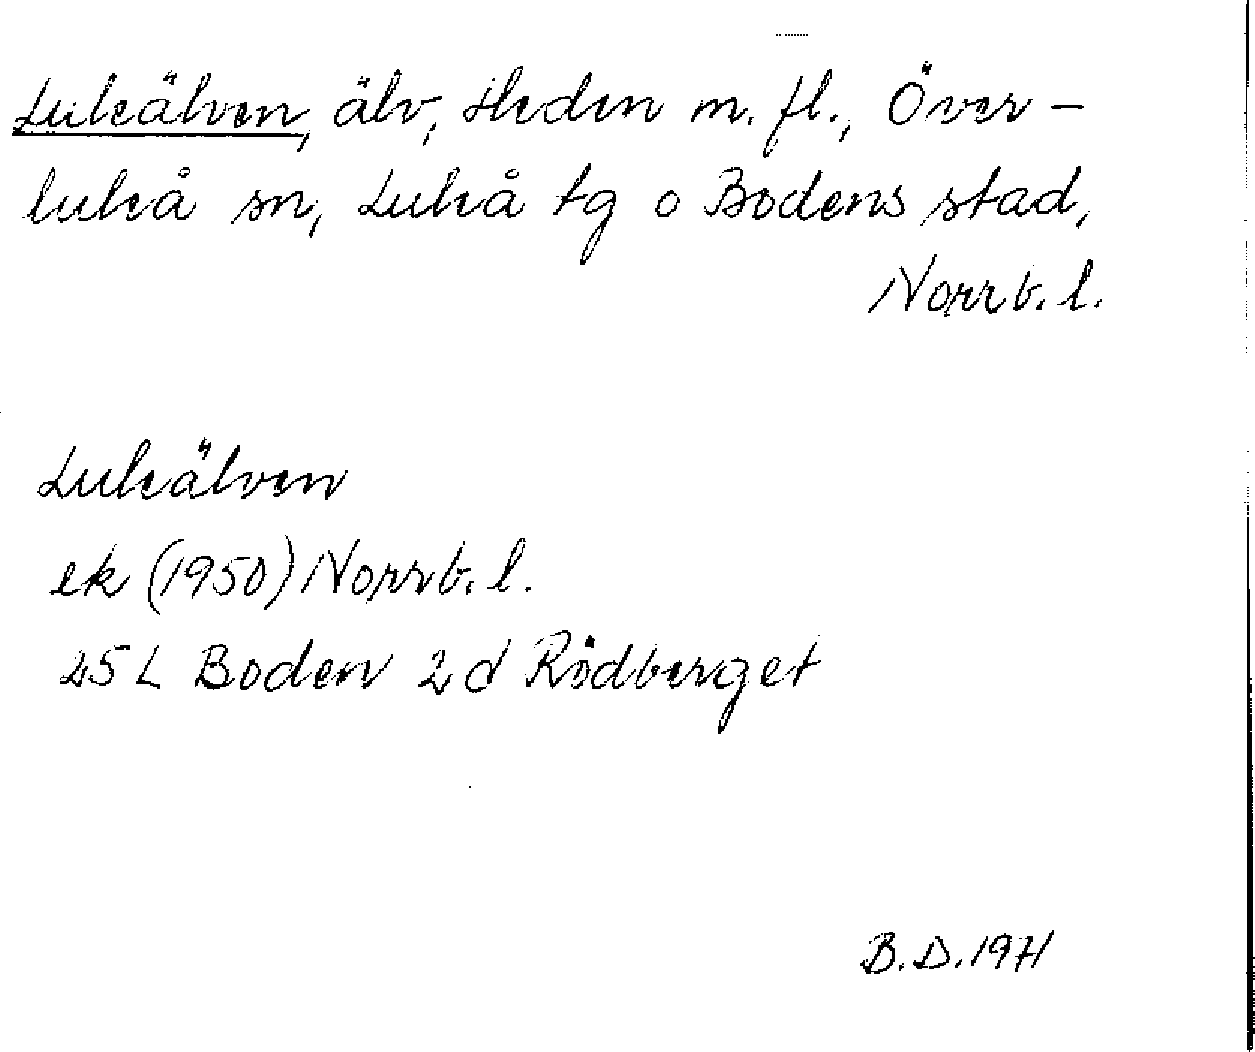 Luleälven, älv, Heden m. fl., Över-
luleå sn, Luleå tg o Bodens stad,
Norrb. l.
Luleälven
ek (1950) Norrb. l.
25 L Boden 2 d Rödberget
B.D. 1971